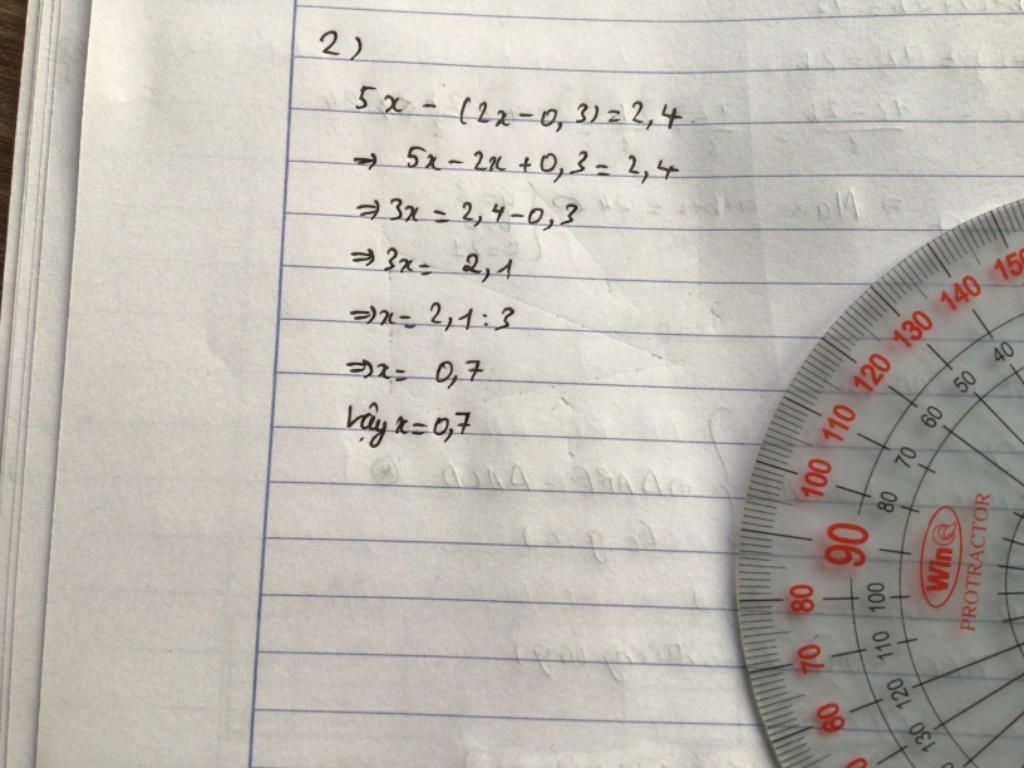 2)
5x - (2x - 0,3) = 2,4
⇒ 5x - 2x + 0,3 = 2,4
⇒ 3x = 2,4 - 0,3
⇒ 3x = 2,1
⇒ x = 2,1 : 3
⇒ x = 0,7
Vậy x = 0,7
150
140
130
120
110
100
90
80
70
60
40
50
60
70
80
100
110
120
130
WinQ
PROTRACTOR